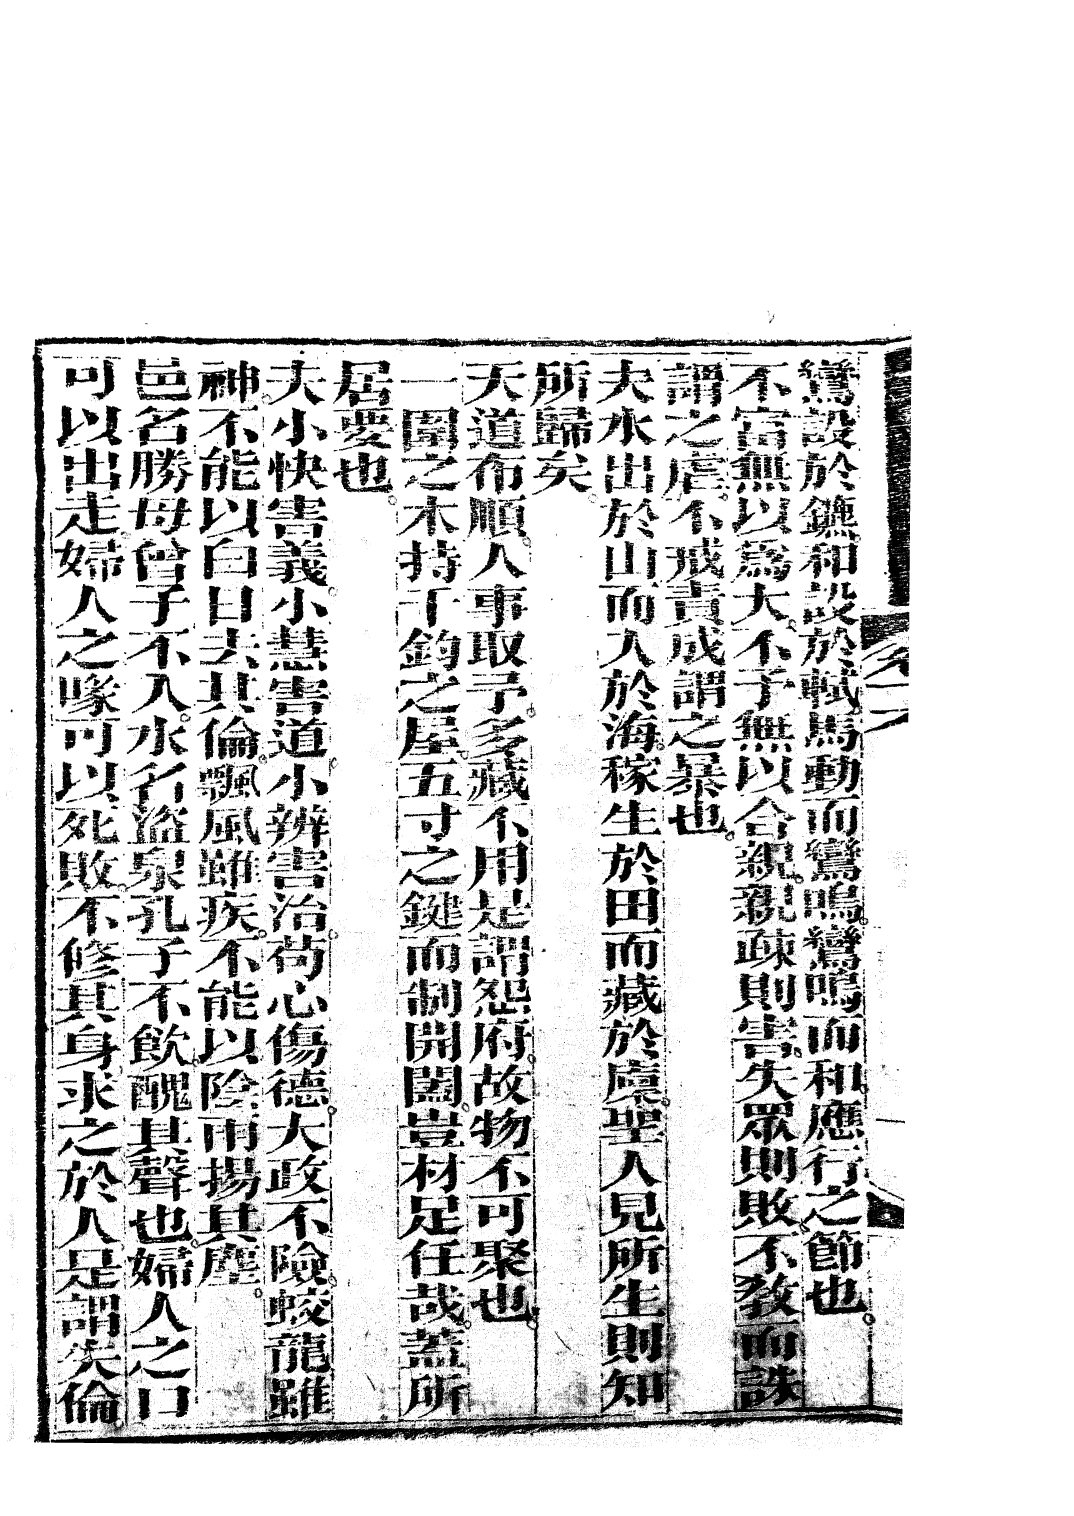 鸞設於鑣和設於軾馬動而鸞鳴鸞鳴而和應行之節也
不富無以爲大不予無以合親親疎則害失眾則敗不教而誅
謂之虐不戒責成謂之暴也
夫水出於山而入於海稼生於田而藏於廩聖人見所生則知
所歸矣
天道布順人事取予多藏不用是謂怨府故物不可聚也
一圍之木持千鈞之屋五寸之鍵而制開闔豈材足任哉蓋所
居要也
夫小快害義小慧害道小辨害治苟心傷德大政不險蛟龍雖
神不能以白日去其倫飄風雖疾不能以陰雨揚其塵
邑名勝母曾子不入水名盜泉孔子不飲醜其聲也婦人之口
可以出走婦人之喙可以死敗不修其身求之於人是謂失倫